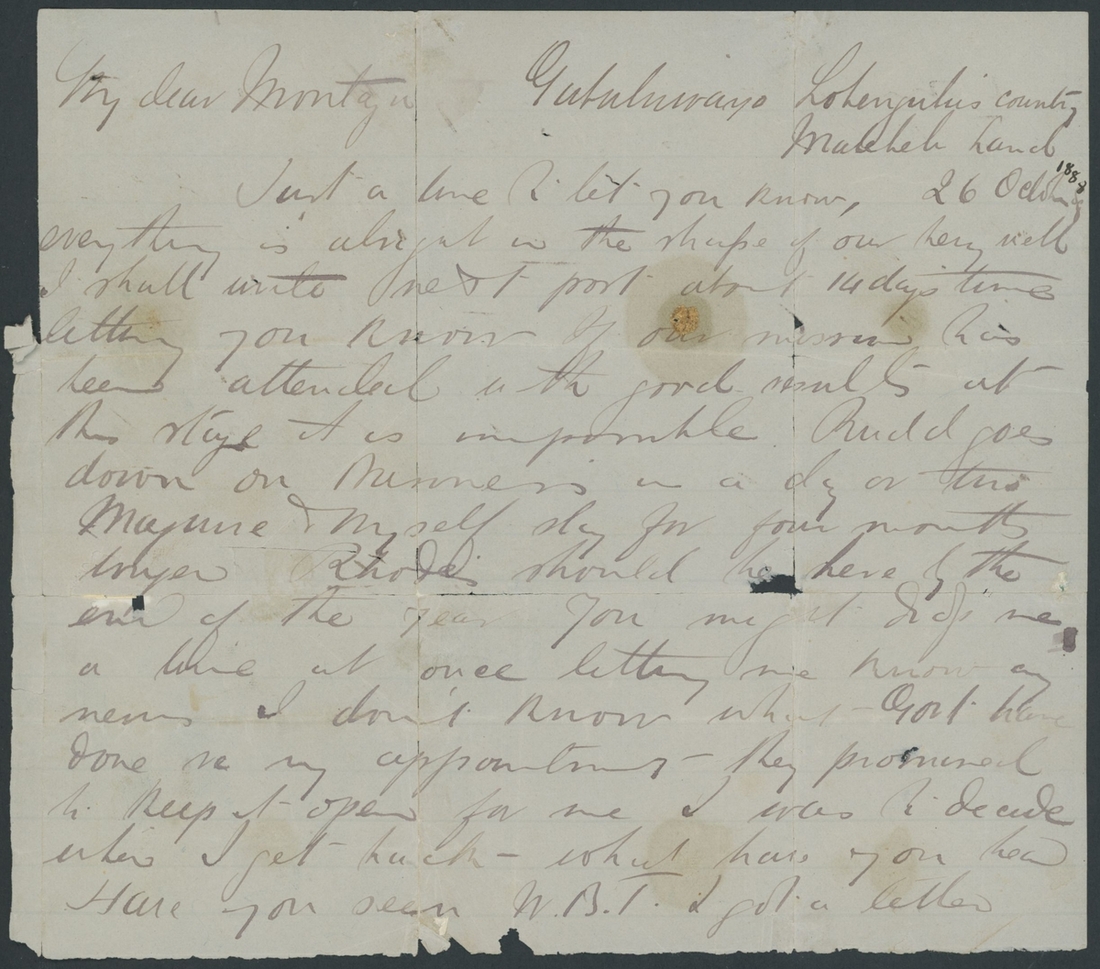 My dear Montagu Gubuluwayo Lobengulas country
Matabele Land
Just a line to let you know, 26 October 1888
everything is alright in the shape of our being well
I shall write next post about 14 days time
letting you know If our mission has
been attended with good results at
this stage it is impossible Rudd goes
down on business in a day or two
Maguire & myself stay for four months
longer Rhodes should be here by the
end of the year You might drop me
a line at once letting me know any
news I don't know what Govt have
done re my appointment they promised
to keep it open for me I was to decide
when I get back - what have you heard
Have you seen W.B.T. I got a letter